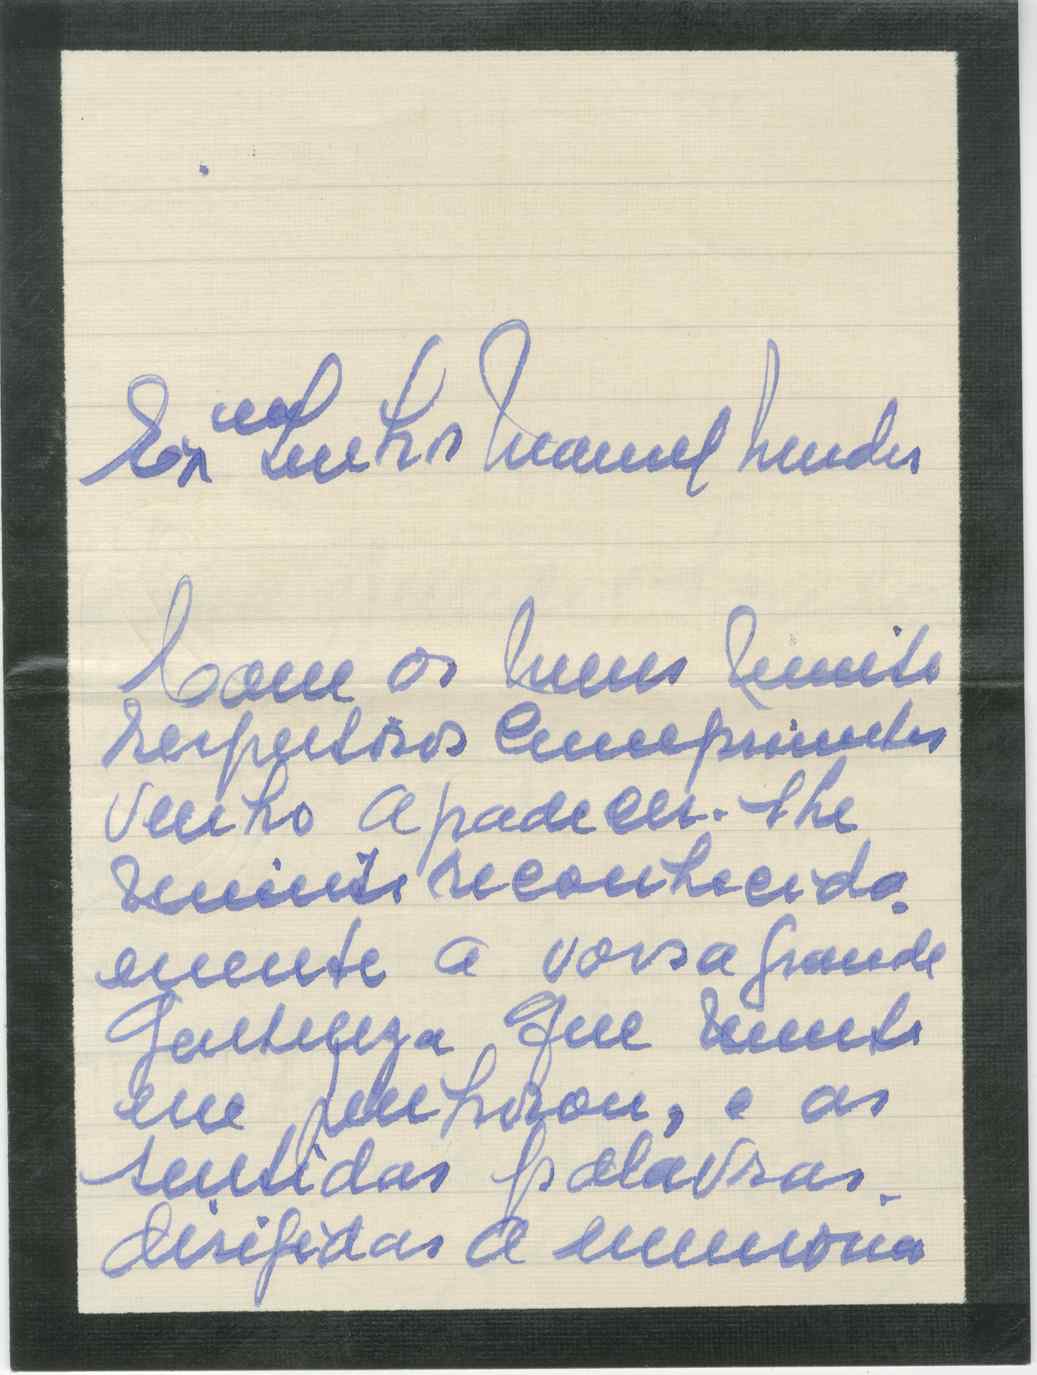 Exmo Senhor Manuel Mendes
Com os meus muito
respeitosos cumprimentos
venho agradecer-lhe
muito reconhecida-
mente a vossa grande
gentileza que muito
me penhorou, e as
sentidas palavras
dirigidas a memoria